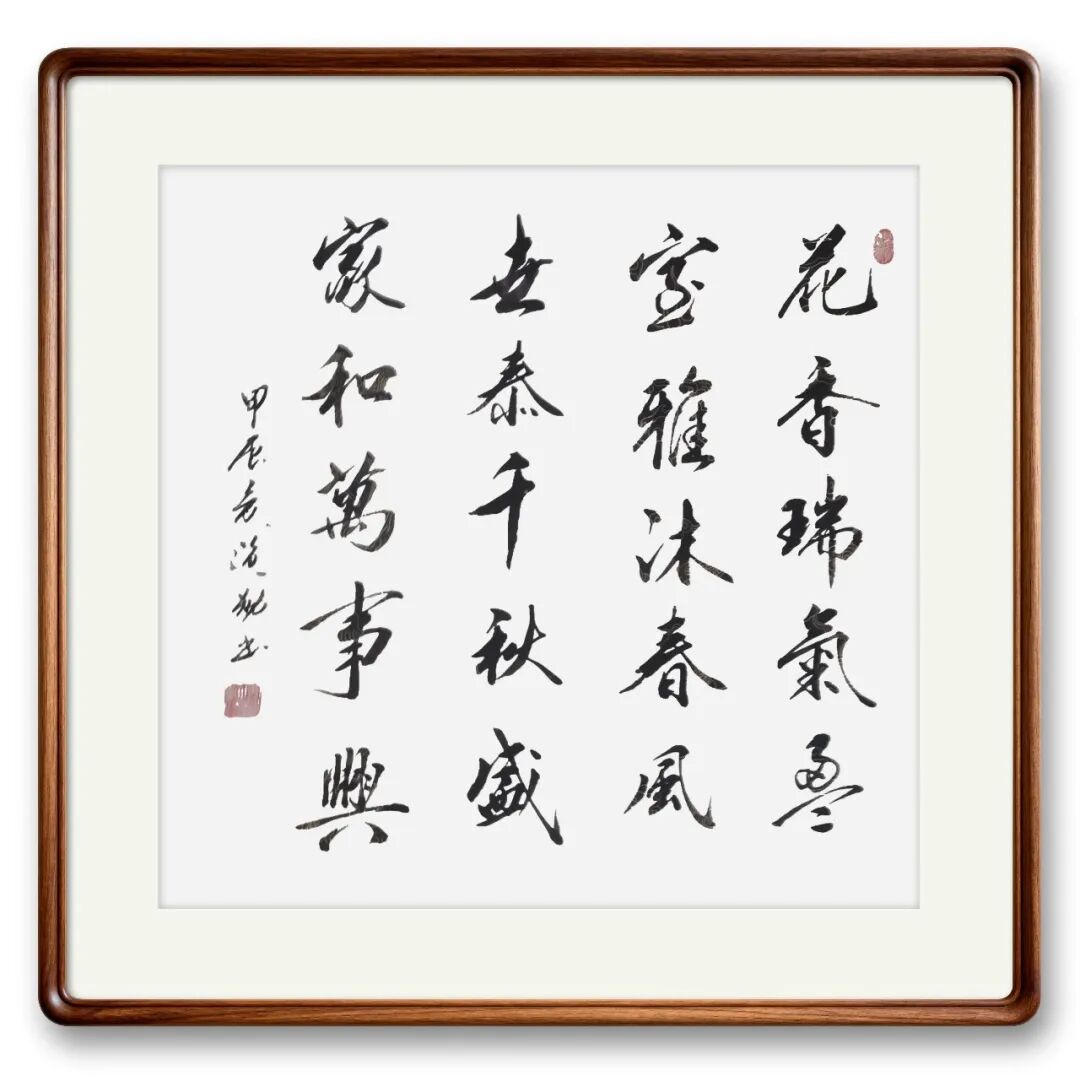 花香瑞氣盈
室雅沐春風
世泰千秋盛
家和萬事興
甲辰